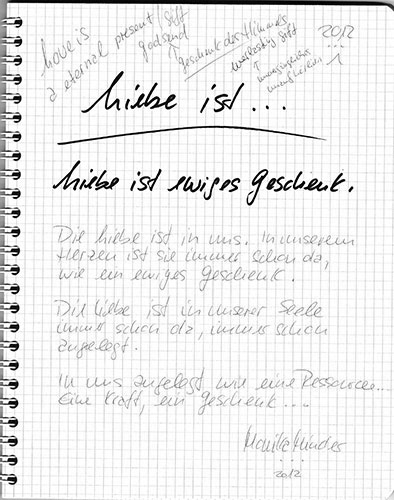 love is
a eternal present gift
godsend
Geschenk des Himmels
2012
...
Liebe ist...
Liebe ist ewiges Geschenk.
Die Liebe ist in uns. In unserem
Herzen ist sie immer schon da,
wie ein ewiges Geschenk.
Die Liebe ist in unserer Seele
immer schon da, immer schon
angelegt.
In uns angelegt wie eine Ressource...
Eine Kraft, ein Geschenk...
Monika Minder
...
2012